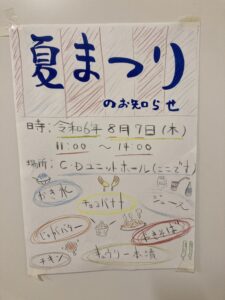 夏まつり
のお知らせ
日時:令和6年 8月7日(木)
11:00 〜 14:00
場所:C・Dユニットホール(ここです)
かき氷
チョコバナナ
ジュース
じゃがバター
やきそば
チキン
きゅうり一本漬